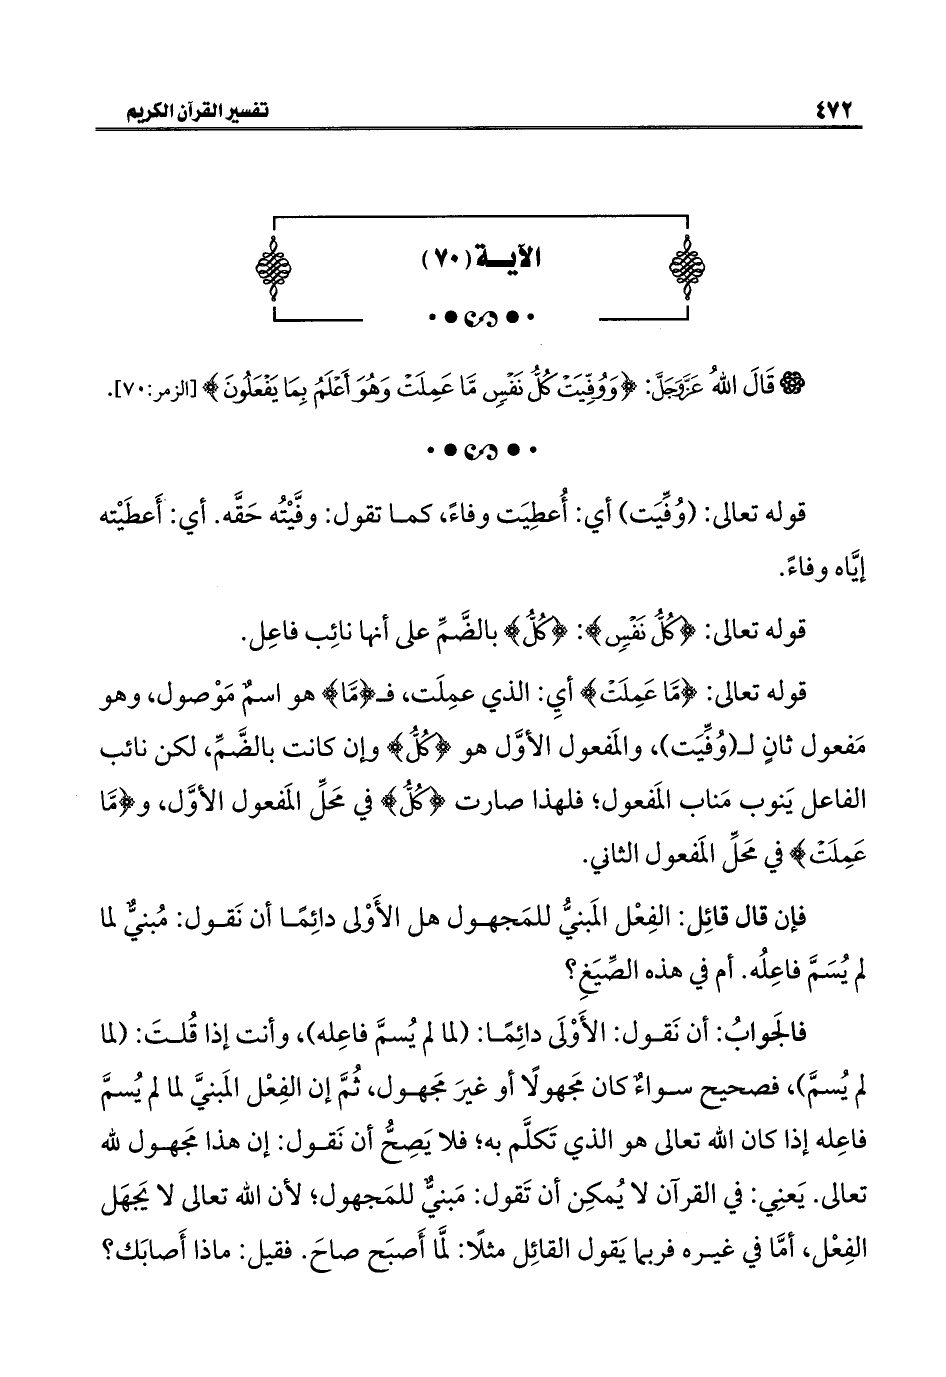 ٤٧٢ تفسير القرآن الكريم
الآيـــة (٧٠)
قَالَ اللهُ عَزَّوَجَلَّ: ﴿وَوُفِّيَتْ كُلُّ نَفْسٍ مَّا عَمِلَتْ وَهُوَ أَعْلَمُ بِمَا يَفْعَلُونَ﴾ [الزمر:٧٠].
قوله تعالى: (وُفِّيَت) أي: أُعطِيَت وفاءً، كمـا تقول: وفَّيْتُه حَقَّه. أي: أَعطَيْته
إيَّاه وفاءً.
قوله تعالى: ﴿كُلُّ نَفْسٍ﴾: ﴿كُلُّ﴾ بالضَّمِّ على أنها نائِب فاعِل.
قوله تعالى: ﴿مَّا عَمِلَتْ﴾ أيِ: الذي عمِلَت، فـ﴿مَّا﴾ هو اسمٌ مَوْصول، وهو
مَفعول ثانٍ لـ(وُفِّيَت)، والمَفعول الأوَّل هو ﴿كُلُّ﴾ وإن كانت بالضَّمِّ، لكن نائب
الفاعل يَنوب مَناب المَفعول؛ فلهذا صارت ﴿كُلُّ﴾ في مَحلِّ المَفعول الأوَّل، و﴿مَّا
عَمِلَتْ﴾ في مَحَلِّ المَفعول الثاني.
فإن قال قائِل: الفِعْل المَبنيُّ للمَجهـول هل الأَوْلى دائِمًـا أن نَقـول: مُبنيٌّ لما
لم يُسَمَّ فاعِلُه. أم في هذه الصِّيَغِ؟
فالجَوابُ: أن نَقـول: الأَوْلَى دائِمًـا: (لما لم يُسمَّ فاعِله)، وأنت إذا قُلـتَ: (لما
لم يُسمَّ)، فصحيح سـواءٌ كان مَجهولًا أو غيرَ مَجهـول، ثُمَّ إن الفِعْل المَبنيَّ لما لم يُسمَّ
فاعِله إذا كان الله تعالى هو الذي تَكلَّم به؛ فلا يَصِحُّ أن نَقـول: إن هذا مَجهـول لله
تعالى. يَعنِي: في القرآن لا يُمكِن أن تَقول: مَبنيٌّ للمَجهول؛ لأن الله تعالى لا يَجهَل
الفِعْل، أمَّا في غيـره فربما يَقول القائل مثلًا: لمَّا أَصبَح صاحَ. فقيل: ماذا أَصابَك؟